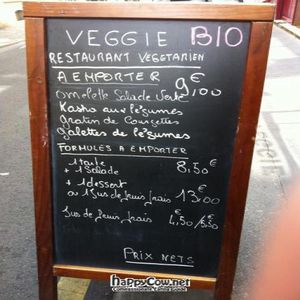 VEGGIE BIO
RESTAURANT VEGETARIEN
A EMPORTER 9€00
omelette Salade Verte
Kasha aux légumes
gratin de Courgettes
galettes de légumes
FORMULES A EMPORTER
1 tarte
+ 1 Salade 8,50€
+ 1 dessert
ou 1 Jus de fruits frais 13€00
Jus de fruits frais 4,50/5,50€
PRIX NETS
HappyCow.net